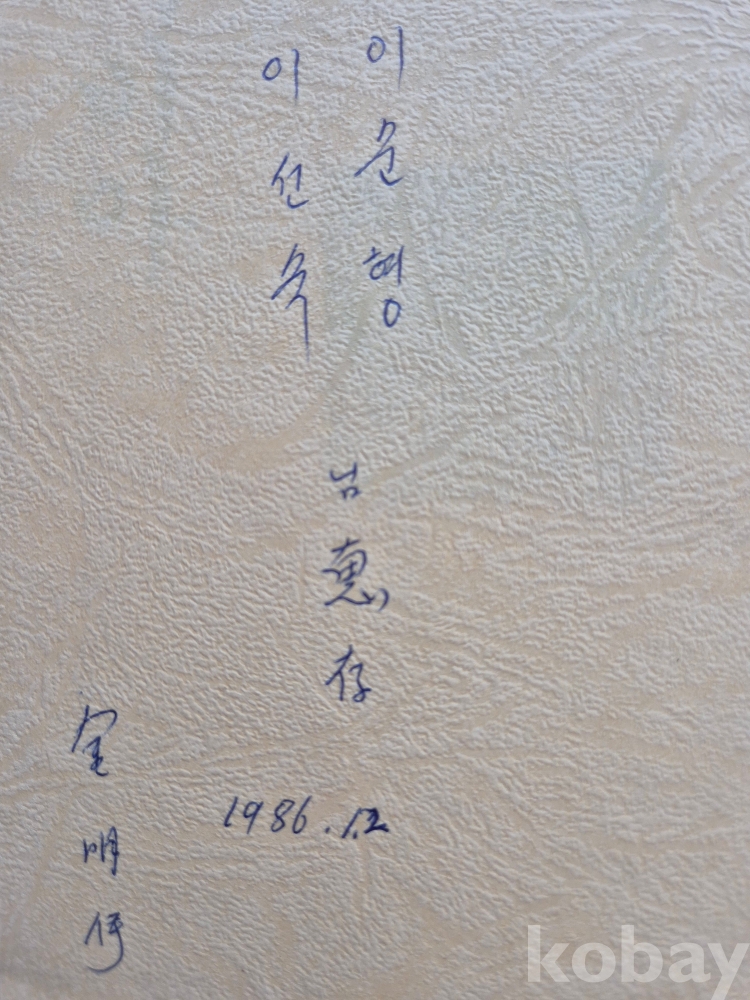 이윤형
이선욱
님 惠存
1986.12
金明
kobay